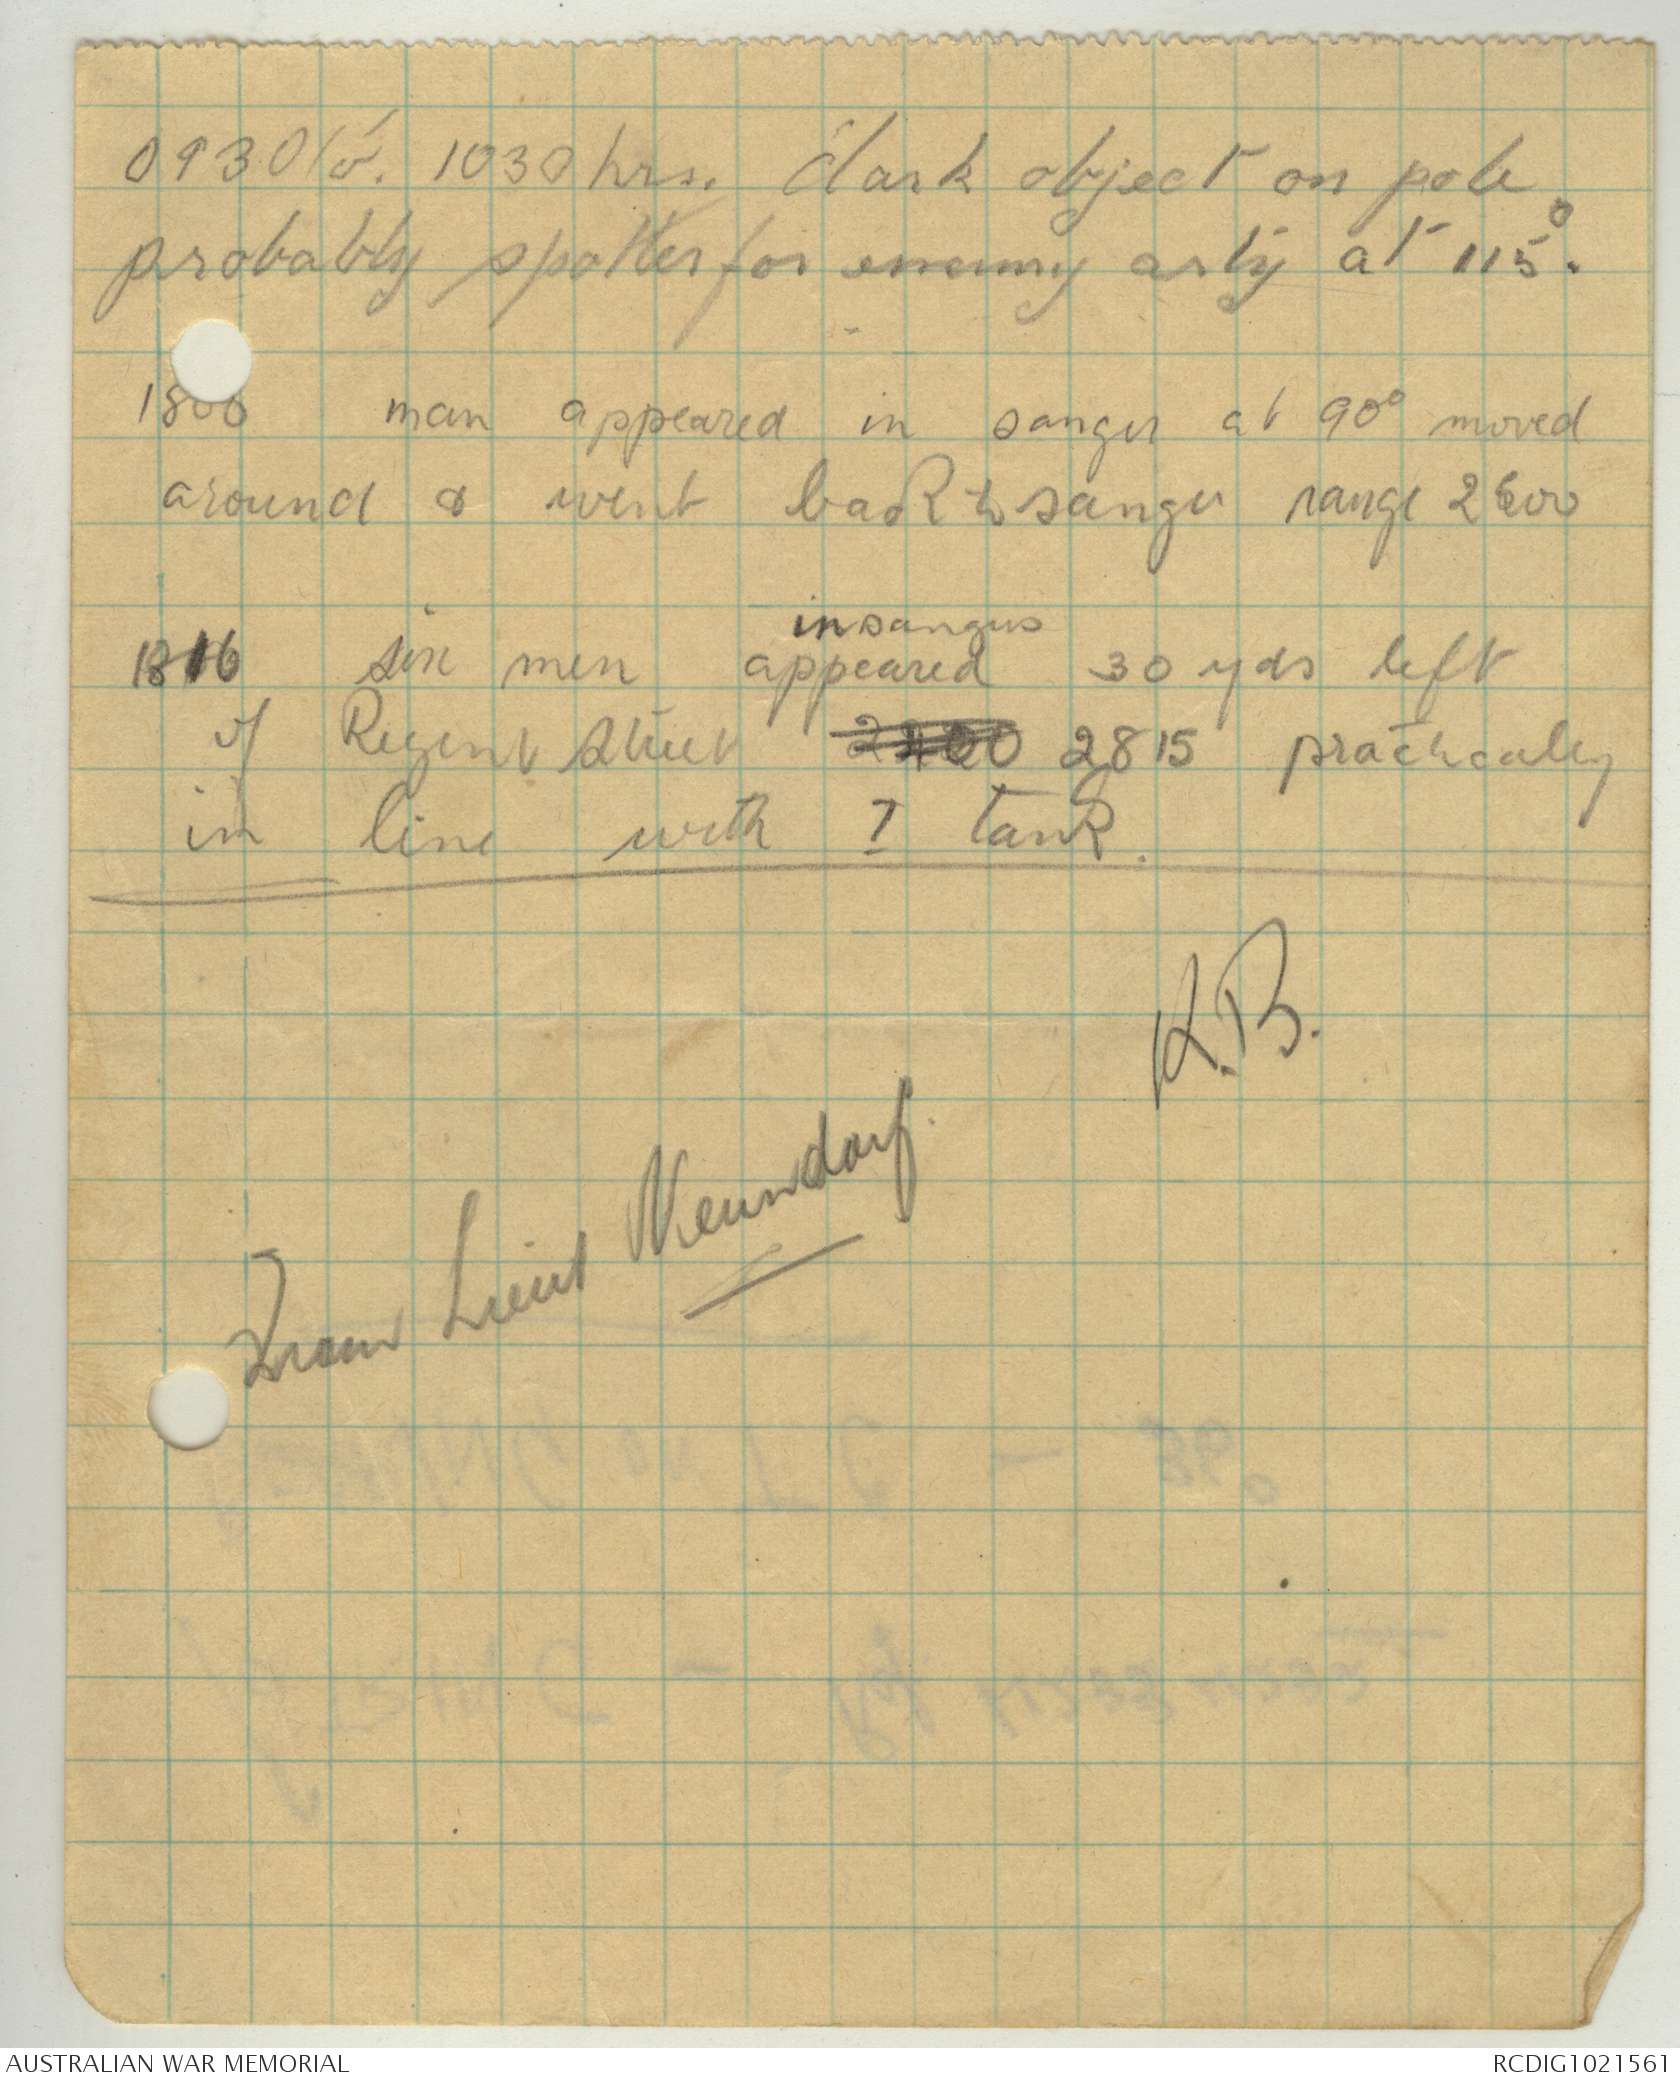 0930 to. 1030 hrs. dark object on pole
probably spotter for enemy arty at 115°.
1800 man appeared in sanger at 90° moved
around & went back to sanger range 2600
in sangers
1816 six men appeared 30 yds left
of Regent Street 2815 practically
in line with I tank.
K.B.
From Lieut Neundorf.
AUSTRALIAN WAR MEMORIAL
RCDIG1021561